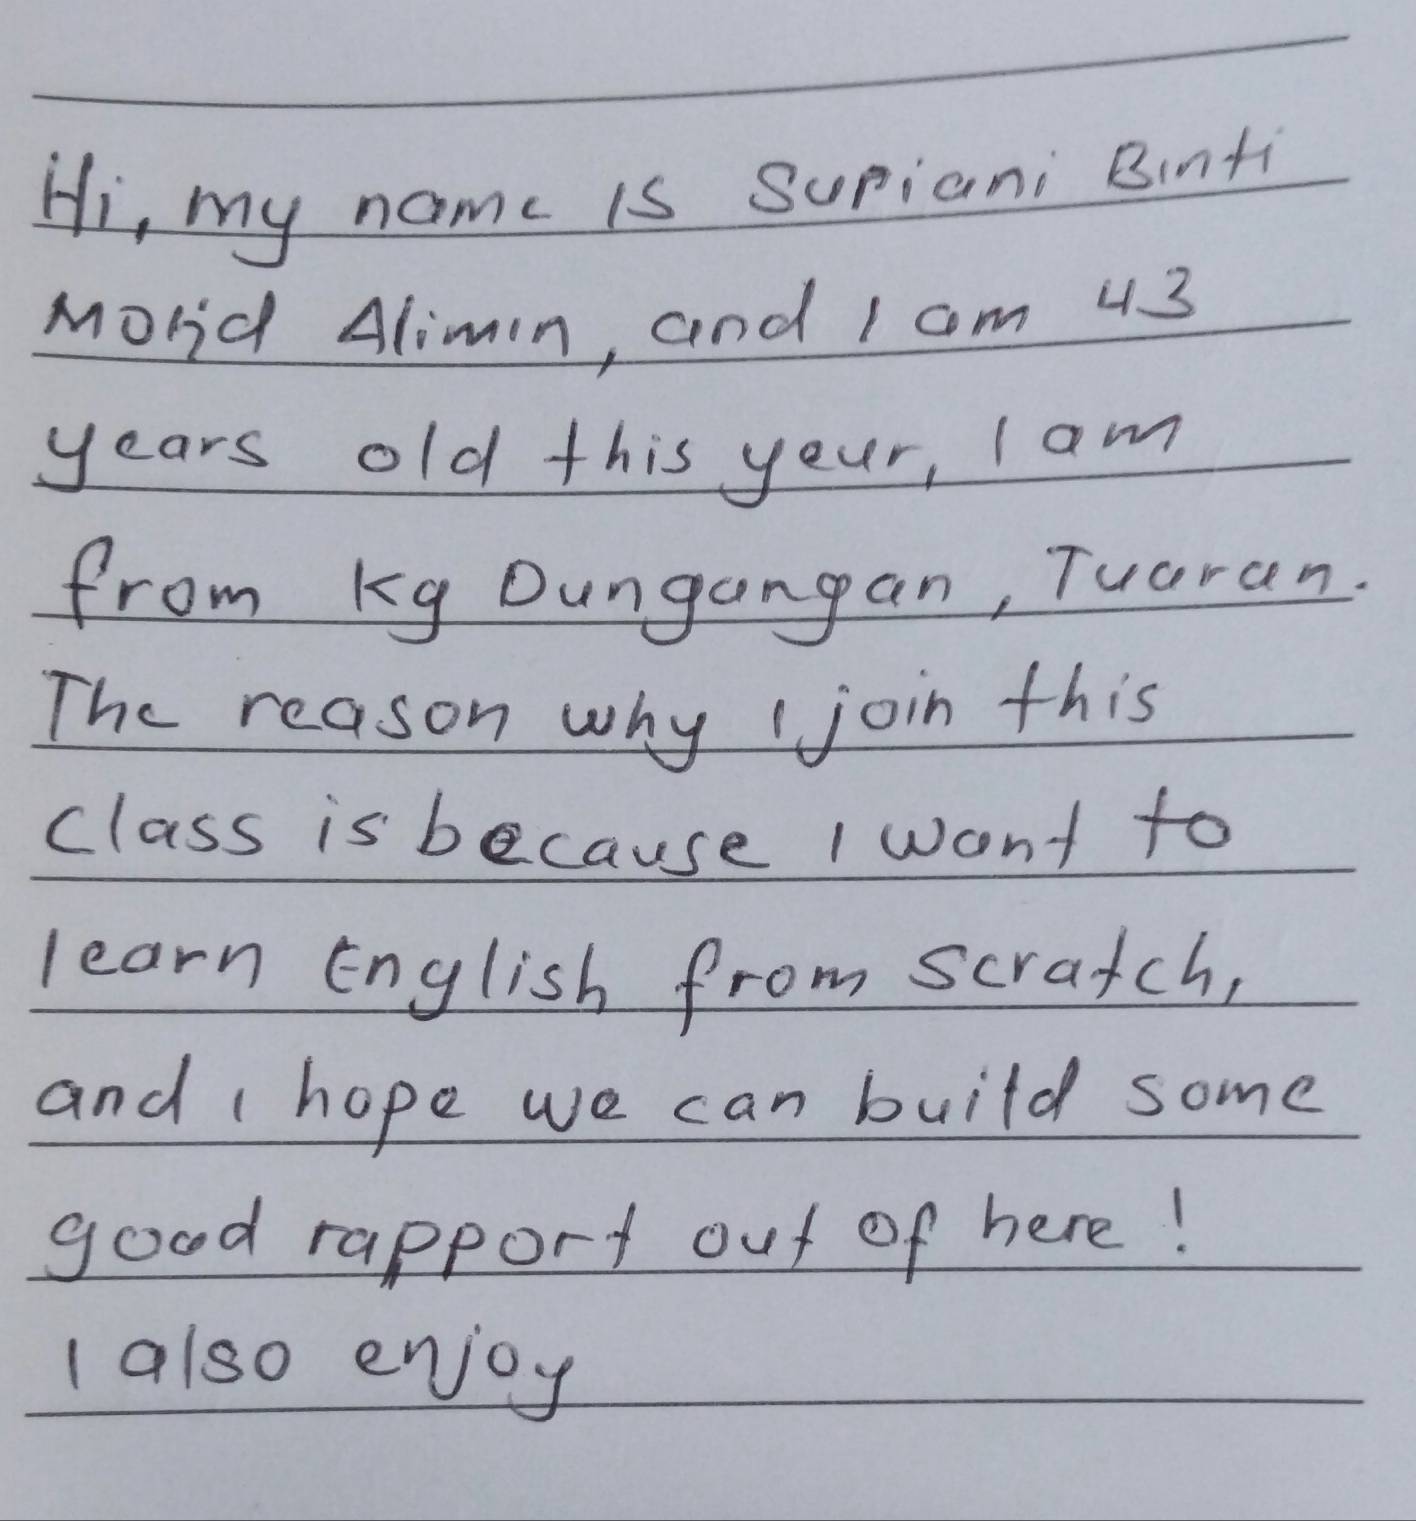 Hi, my name is Supiani Binti
Mohd Alimin, and I am 43
years old this year, I am
from Kg Dungangan, Tuaran.
The reason why I join this
class is because I want to
learn English from scratch,
and I hope we can build some
good rapport out of here!
I also enjoy